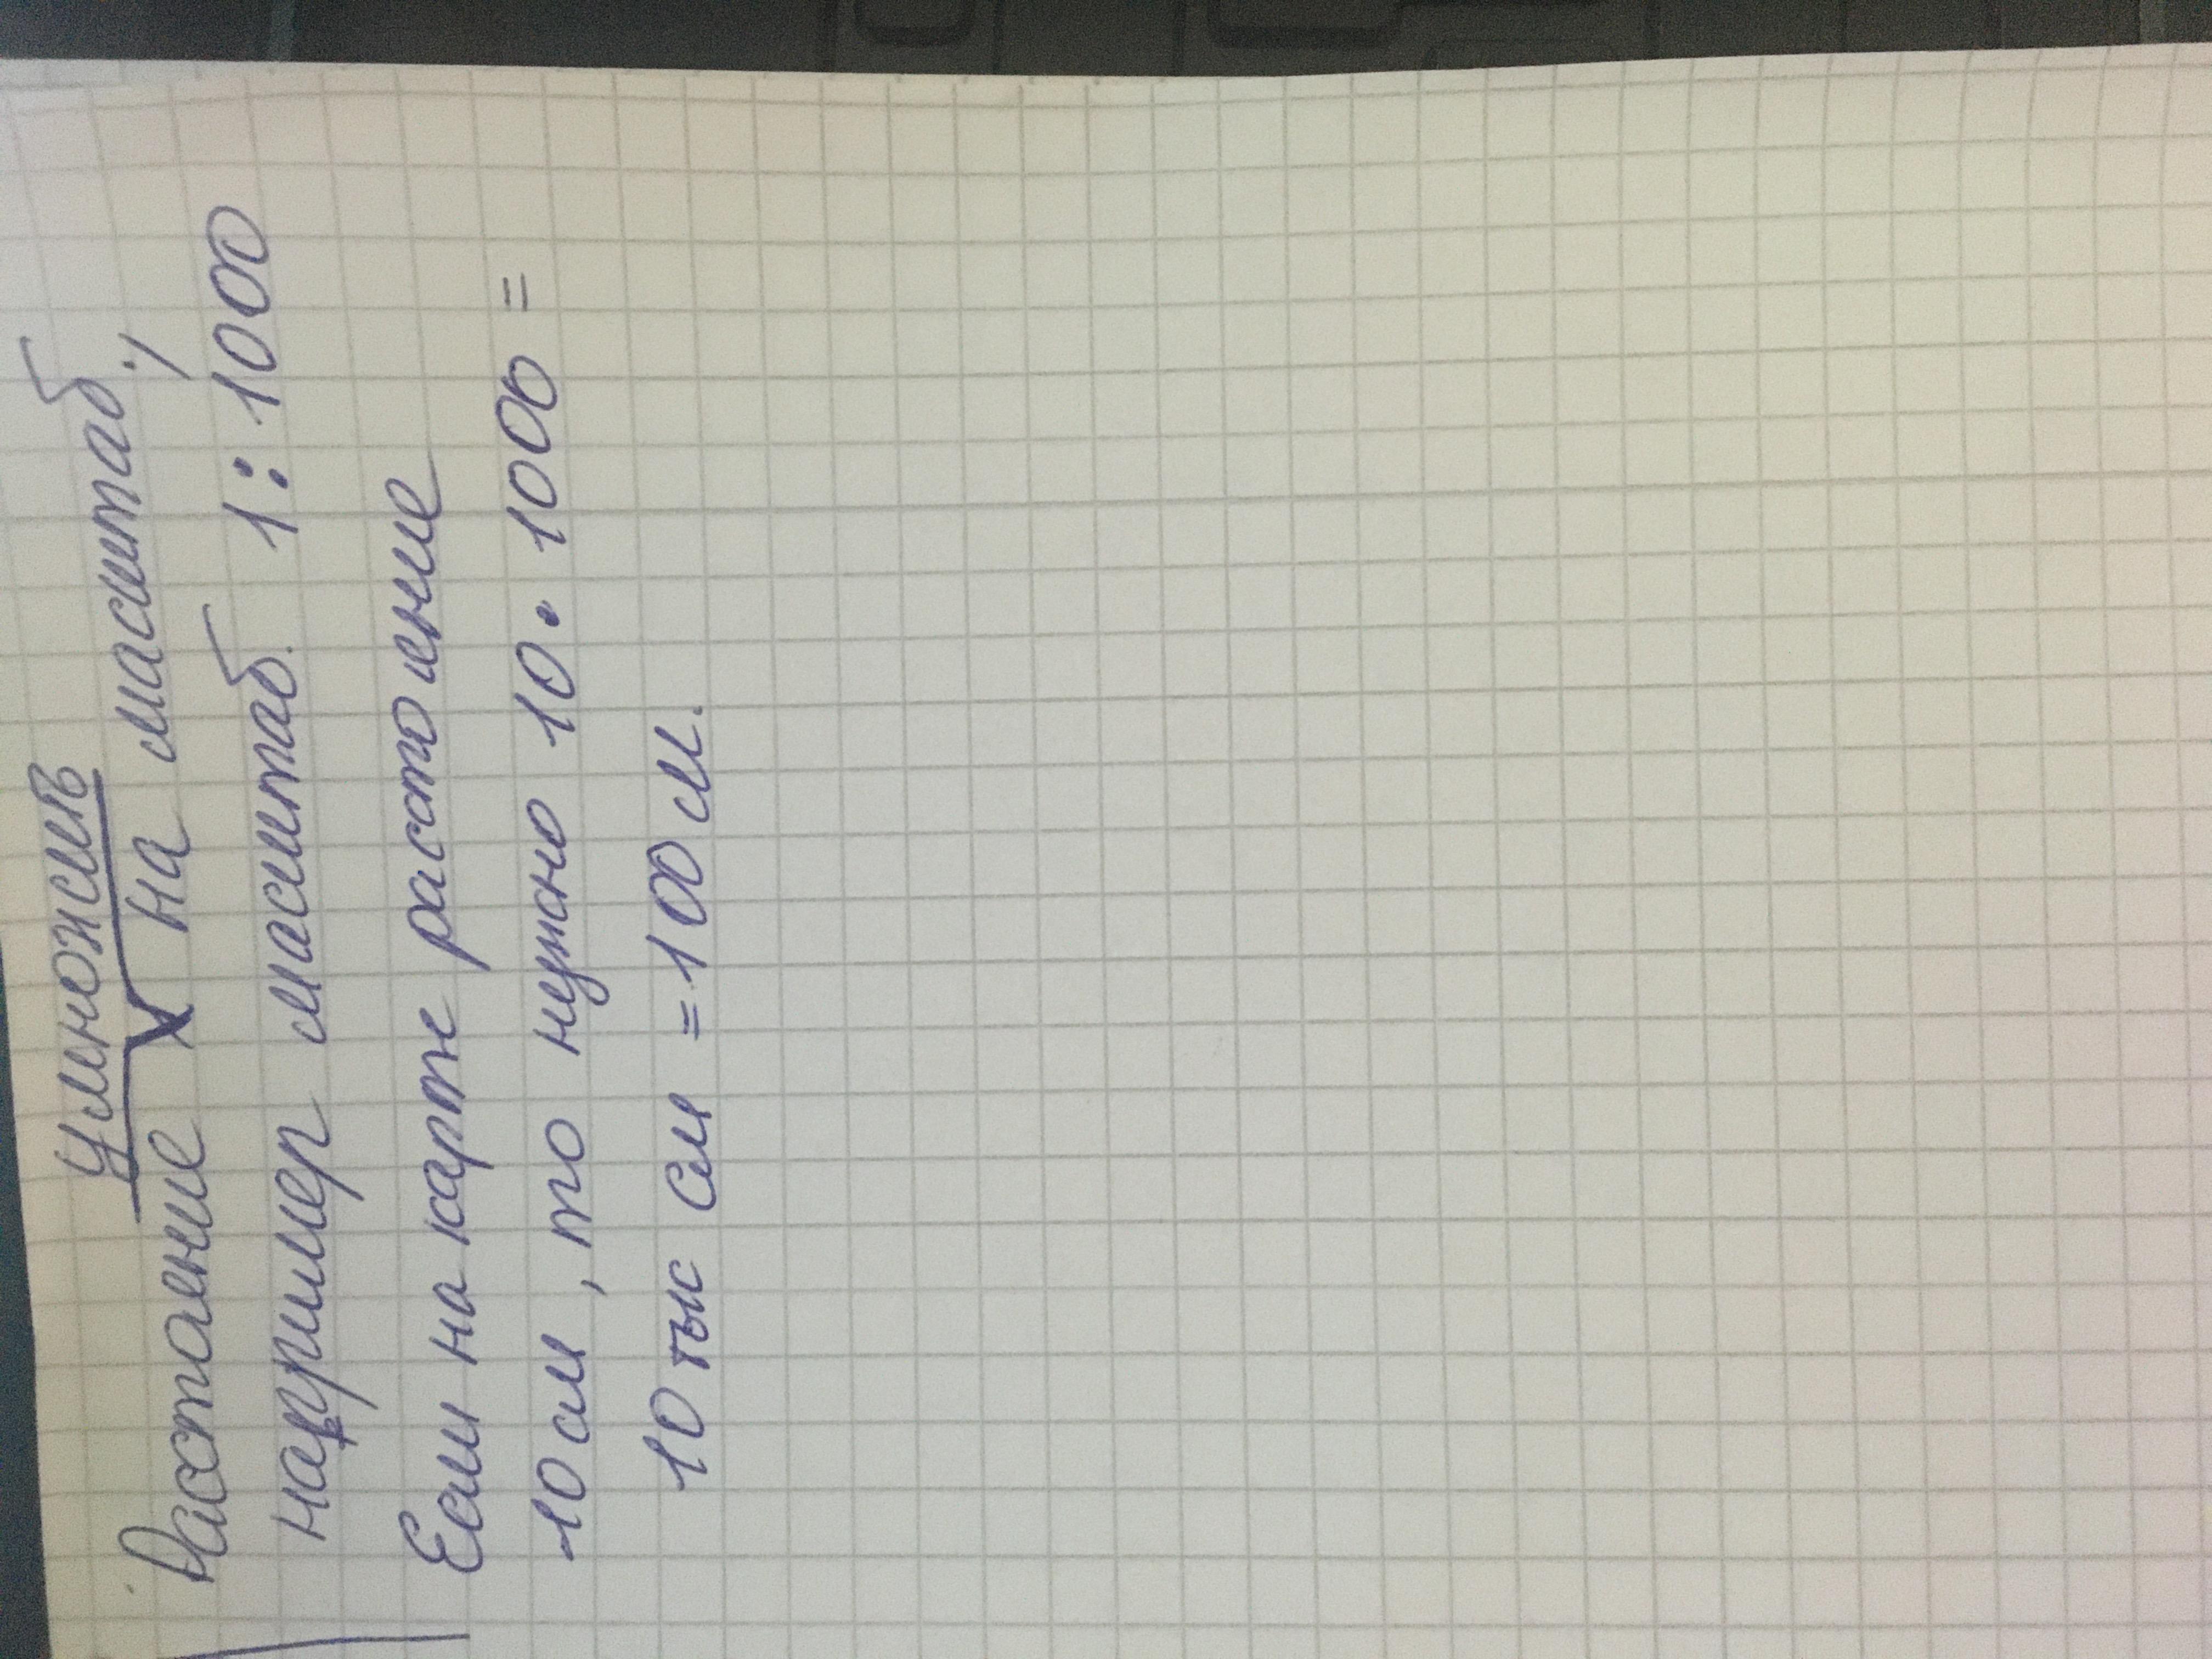 умножив
Расстоение на масштаб,
например масштаб 1:1000
Если на карте расстоение
10 см, то нужно 10 • 1000 =
10 тыс см = 100 м.